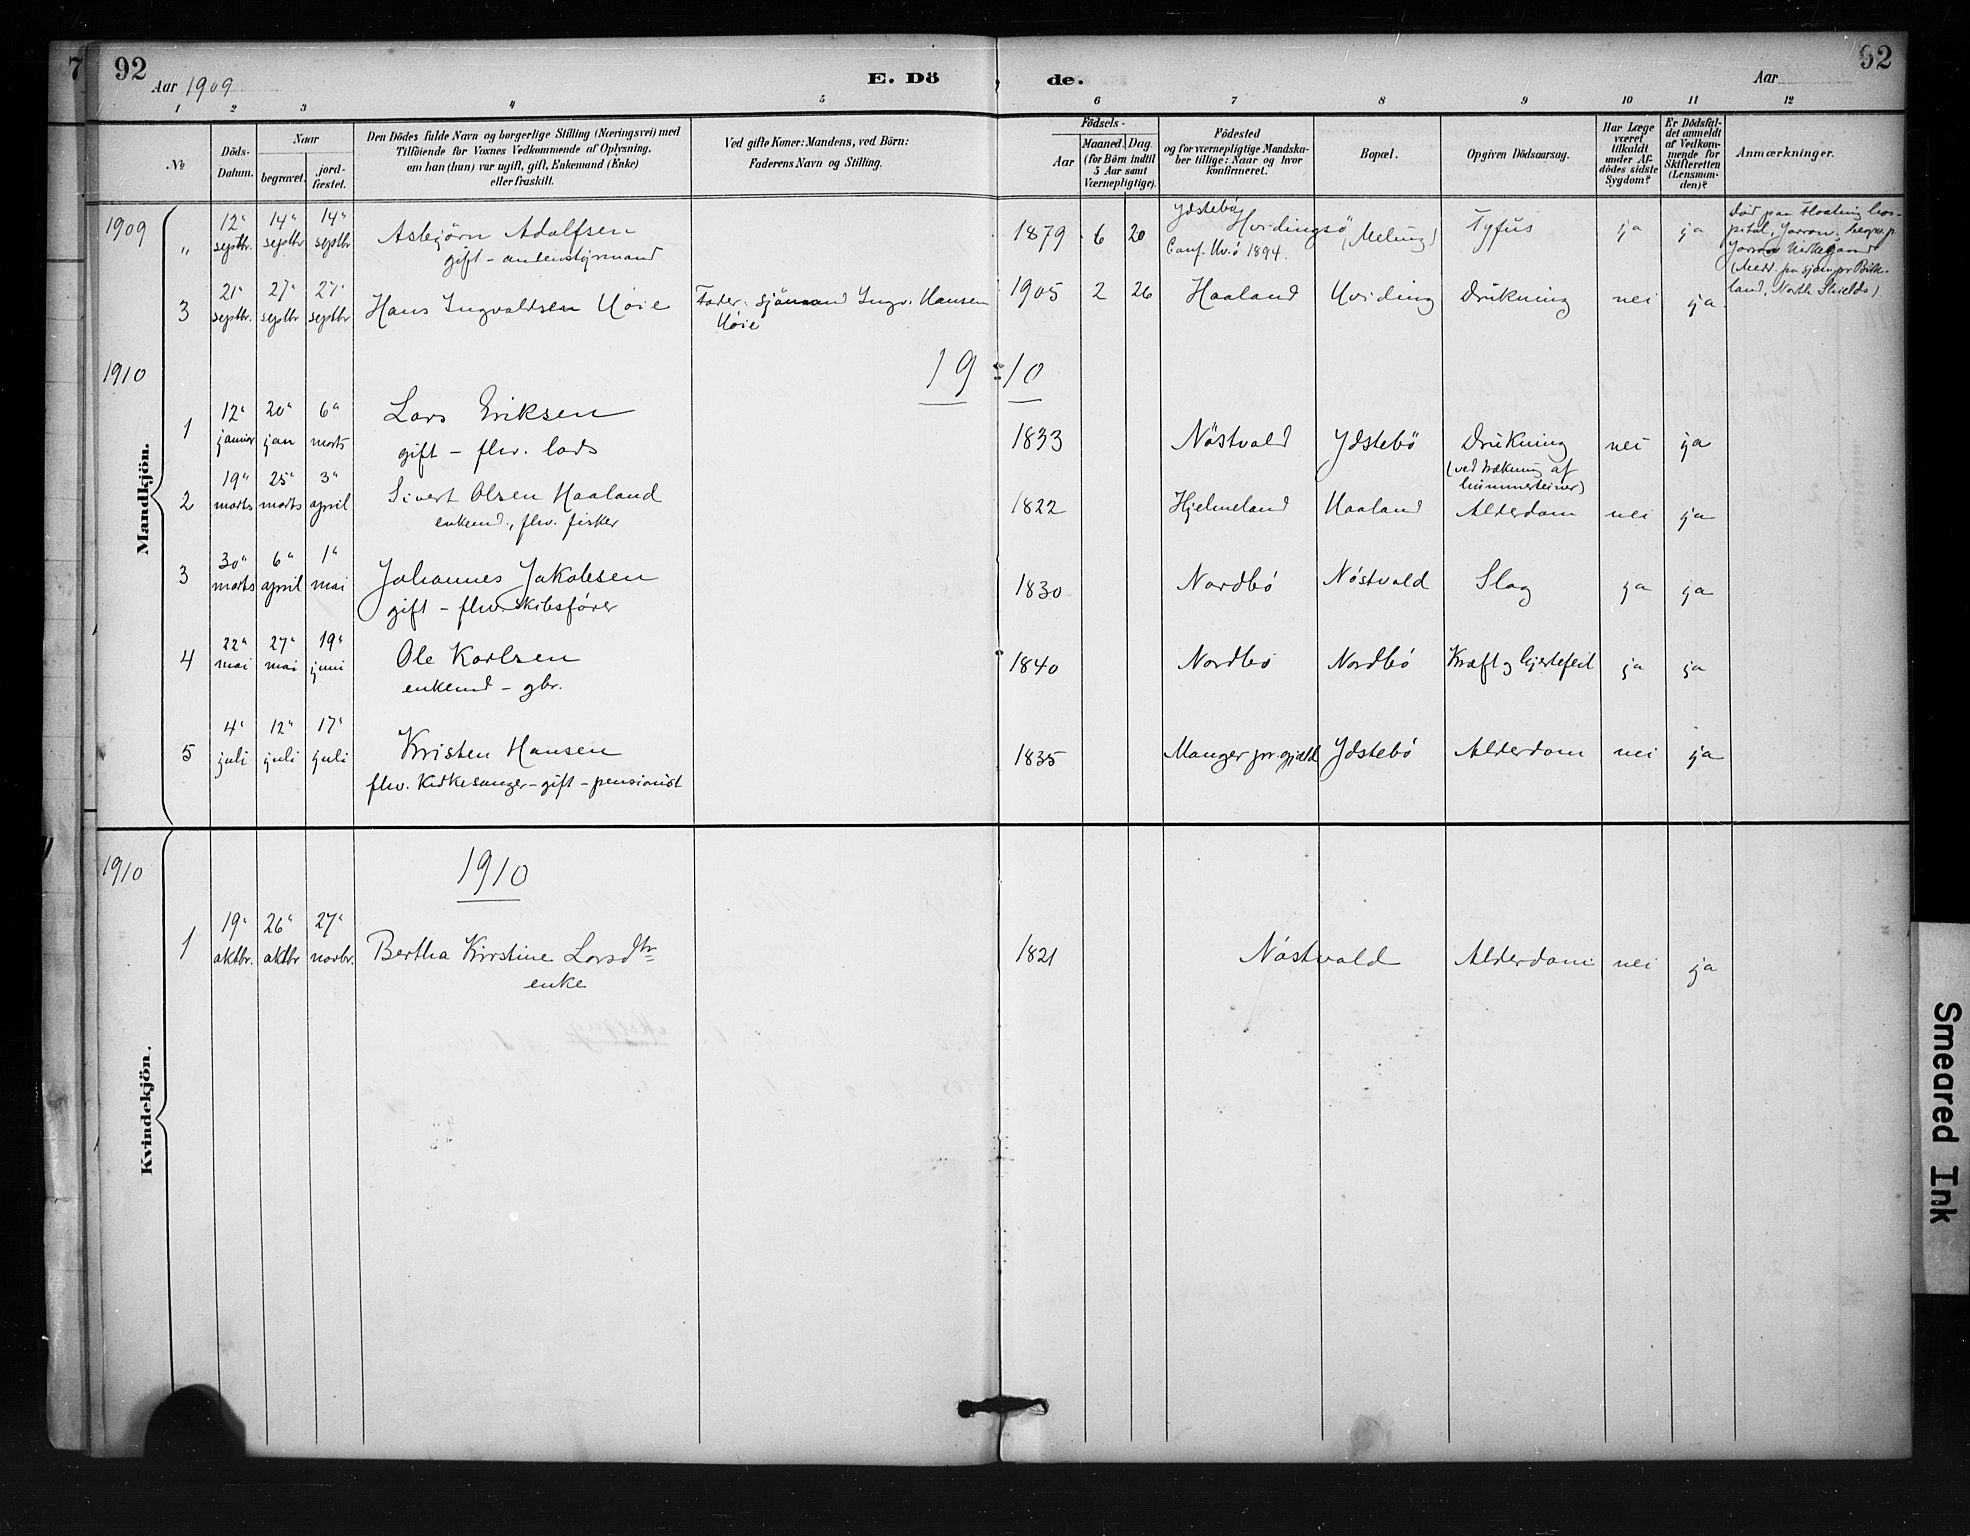 92
Aar 1909
E. Dö
de.
Aar
92
1 2 3 4 5 6 7 8 9 10 11 12
№
Döds-
Datum.
Naar
begravet.
jord-
fæstet.
Den Dödes fulde Navn og borgerlige Stilling (Næringsvei) med
Tilföiende for Voxnes Vedkommende af Oplysning,
om han (hun) var ugift, gift, Enkemand (Enke)
eller fraskilt.
Ved gifte Koner: Mandens, ved Börn:
Faderens Navn og Stilling.
Födsels-
Aar
Maaned. Dag.
(for Börn indtil
5 Aar samt
Værnepligtige).
Födested
og for værnepligtige Mandska-
ber tillige: Naar og hvor
konfirmeret.
Bopæl.
Opgiven Dödsaarsag.
Har Læge
været
tilkaldt
under Af-
dödes sidste
Sygdom?
Er Dödsfal-
det anmeldt
af Vedkom-
mende for
Skifteretten
(Lensman-
den)?
Anmærkninger.
Mandkjön.
1909
" 12' septbr 14' septbr 14' septbr
Asbjörn Adolfsen
gift - andenstyrmand
1879 6 20
Ydstebø Hvidingsö (Meling)
Conf. Hv.ö 1894.
Tyfus ja ja
Död paa Floating hos-
pital, Jarrow, begr. p.
Jarrow
land, North Shields)
3 21' septbr. 27' septbr 27' septbr
Hans Ingvaldsen Höie
Fader: Sjömand Ingv. Hansen
Höie
1905 2 26 Haaland Hviding Drukning nei ja
1910
19 10
1 12' januar 20' jan 6' marts
Lars Eriksen
gift - fhv. lods
1833 Nöstvold Ydstebö Drukning nei ja
(ved trækning af
hummerteiner)
2 19' marts 25' marts 3' april
Sivert Olsen Haaland
enkemd., fhv. fisker
1822 Hjelmeland Haaland Alderdom nei ja
3 30' marts 6' april 1' mai
Johannes Jakobsen
gift - fhv. skibsförer
1830 Nordbö Nöstvold Slag ja ja
4 22' mai 27' mai 19' juni
Ole Karlsen
enkemd - gbr.
1840 Nordbö Nordbö Kræft og hjertefeil ja ja
5 4' juli 12' juli 17' juli
Kristen Hansen
fhv. Kirkesanger - gift - pensionist
1835 Manger pr.gjæld Ydstebö Alderdom nei ja
Kvindekjön.
1910
1910
1 19' oktbr. 26' oktbr 27' novbr.
Bertha Kirstine Larsdtr
enke
1821 Nöstvold Alderdom nei ja
Smeared Ink